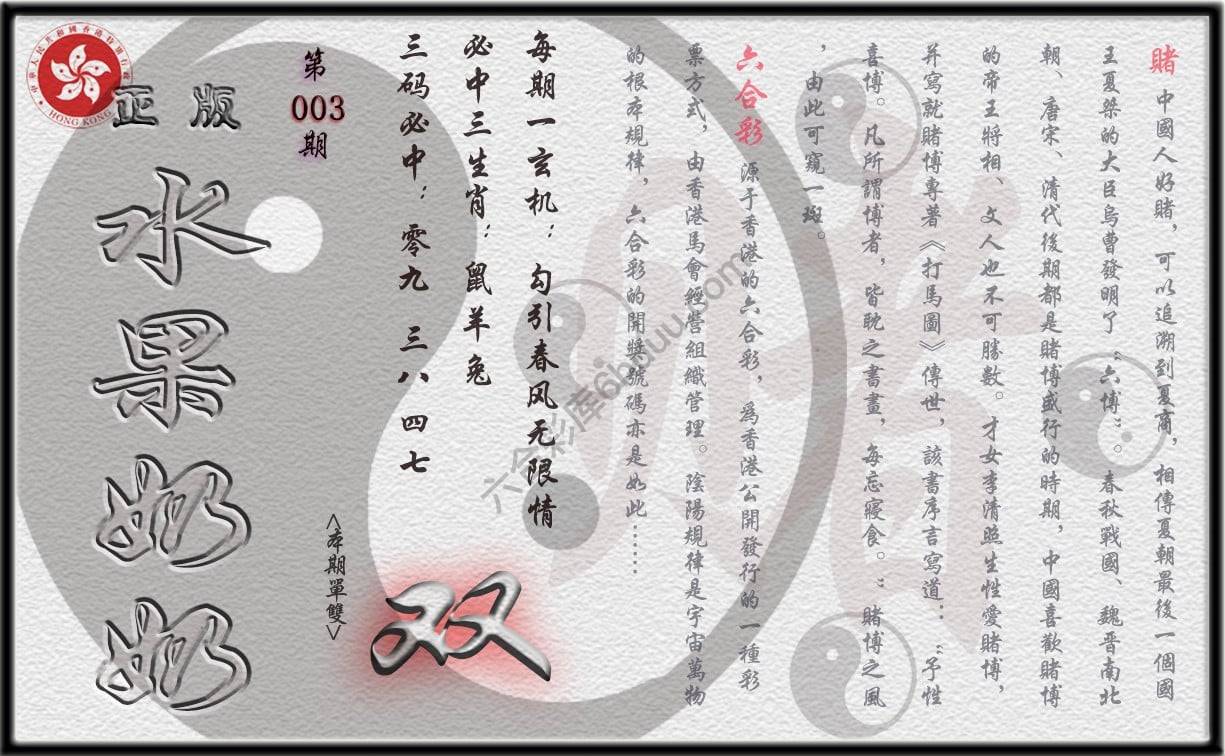 賭 中國人好賭，可以追溯到夏商，相傳夏朝最後一個國
王夏桀的大臣烏曹發明了“六博”。春秋戰國、魏晋南北
朝、唐宋、清代後期都是賭博盛行的時期，中國喜歡賭博
的帝王將相、文人也不可勝數。才女李清照生性愛賭博，
并寫就賭博專著《打馬圖》傳世，該書序言寫道：“予性
喜博。凡所謂博者，皆耽之書畫，每忘寢食。”賭博之風
，由此可窺一斑。
六合彩 源于香港的六合彩，爲香港公開發行的一種彩
票方式，由香港馬會經營組織管理。陰陽規律是宇宙萬物
的根本規律，六合彩的開獎號碼亦是如此……
每期一玄机：勾引春风无限情
必中三生肖：鼠羊兔
三码必中：零九 三八 四七
第
003
期
<本期單雙>
双
正版
水果奶奶
中華人民共和國香港特別行政區
HONG KONG
六合彩库6hduu.com